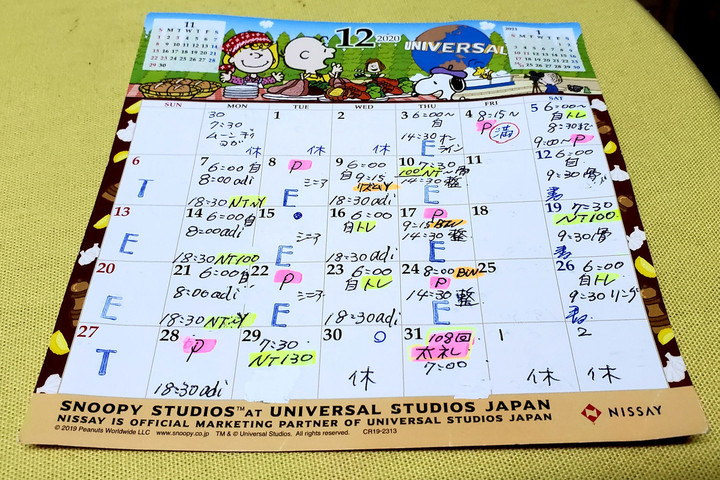 11
S M T W T F S
1 2 3 4 5 6 7
8 9 10 11 12 13 14
15 16 17 18 19 20 21
22 23 24 25 26 27 28
29 30
12 2020
UNIVERSAL
2021 1
S M T W T F S
SUN MON TUE WED THU FRI SAT
30
7:30
ムーンヨガ
休
1
休
2
休
3 6:00~
自
14:30 オン
ライン
E
4 8:15~
P
満
5 6:00~
自トレ
8:30まで
9:00~ P
6
T
7
6:00 自
8:00 adi
18:30 NTNY
8
P
E
ミニア
9 6:00
自
9:15
18:30 adi
10 7:30
100NT~
14:30 整
E
11
12 6:00
自
9:30 骨
13
E
14 6:00 自
8:00 adi
18:30 NT100
15
E
ミニア
16 6:00
自トレ
18:30 adi
17 P
9:15 BW
14:30 整
E
18
19 7:30
NT100.
9:30 骨
20
E
21 6:00 自
8:00 adi
18:30 NTNY
22
P
E
ミニア
23 6:00
自トレ
18:30 adi
24 8:00 BW
P
14:30 整
E
25
26 6:00
自トレ
9:30 リング
27
T
28
P
18:30 adi
29
7:30
NT130
30
休
31 108回
太礼
7:00
1
休
2
休
SNOOPY STUDIOS™ AT UNIVERSAL STUDIOS JAPAN
NISSAY IS OFFICIAL MARKETING PARTNER OF UNIVERSAL STUDIOS JAPAN
© 2019 Peanuts Worldwide LLC www.snoopy.co.jp TM & © Universal Studios. All rights reserved. CR19-2313
NISSAY